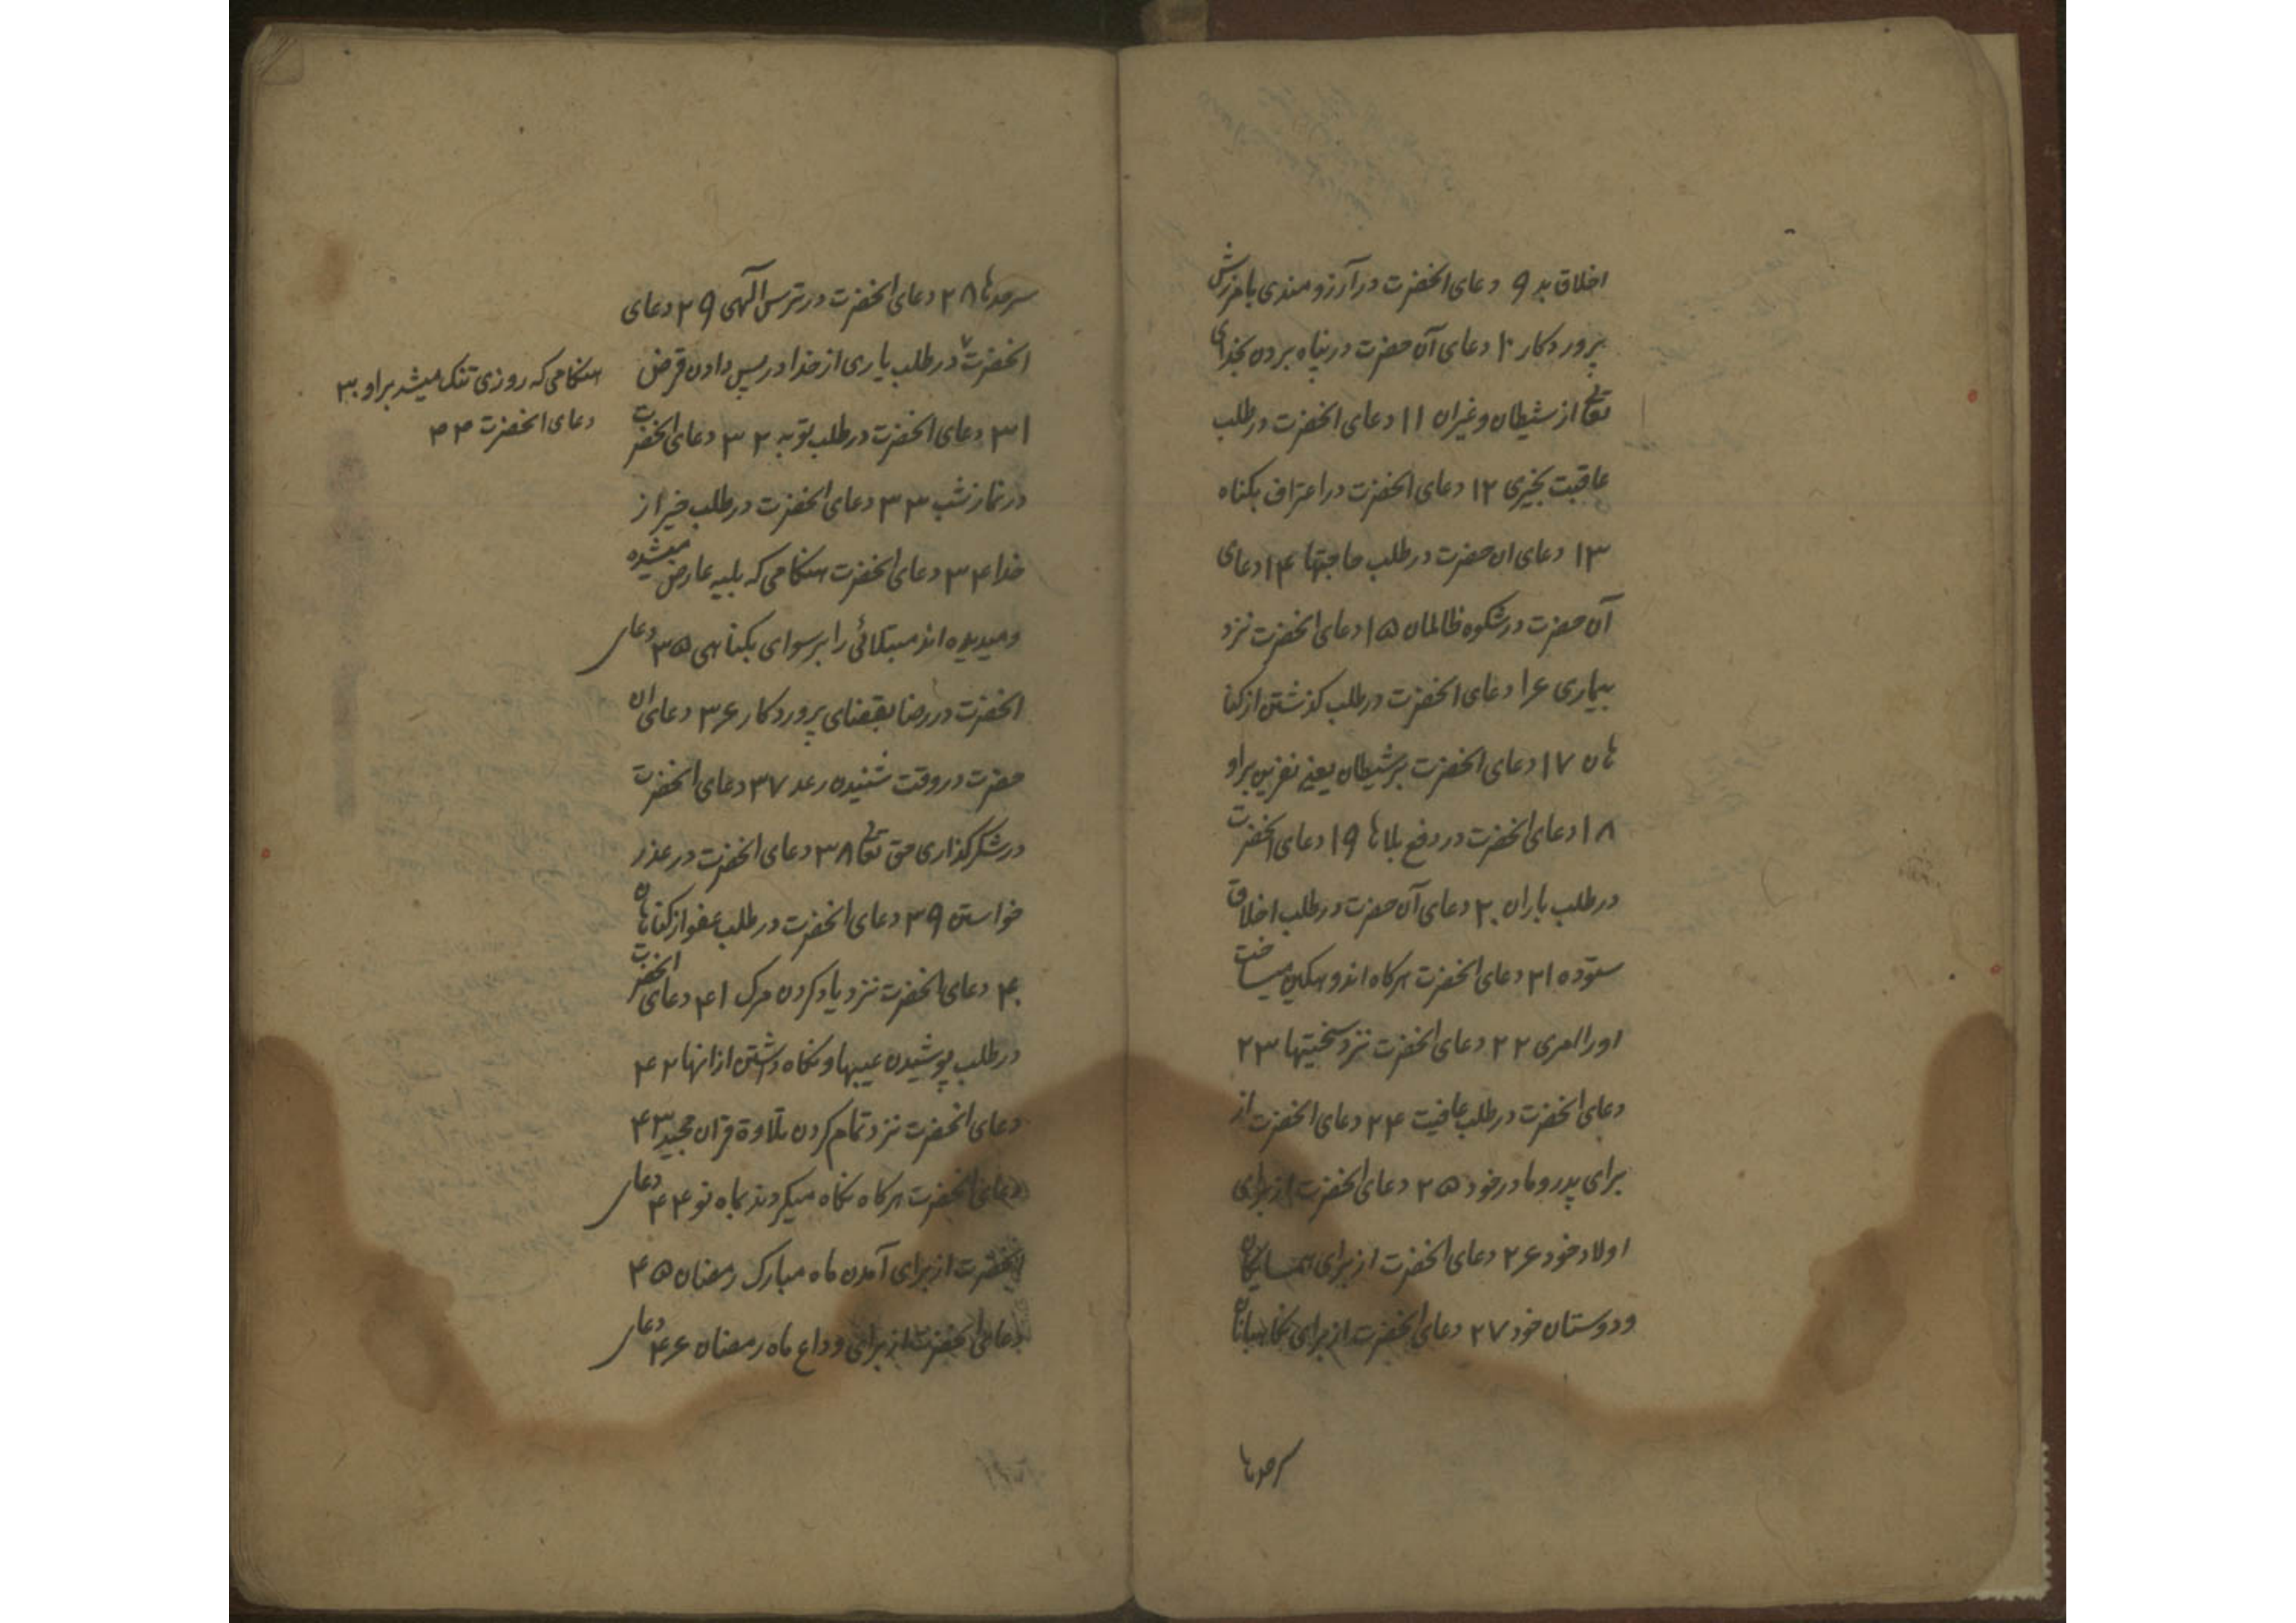 اخلاق بد ۹ دعای انحضرت در آرزومندی بامرزش
پروردکار ۱۰ دعای آن حضرت در پناه بردن بخدای
تعالی از شیطان و غیر ان ۱۱ دعای انحضرت در طلب
عاقبت بخیری ۱۲ دعای انحضرت در اعتراف بکناه
۱۳ دعای ان حضرت در طلب حاجتها ۱۴ دعای
آن حضرت در شکوه ظالمان ۱۵ دعای انحضرت نزد
بیماری ۱۶ دعای انحضرت در طلب کذشتن از کنا
هان ۱۷ دعای انحضرت بر شیطان یعنی نفرین بر او
۱۸ دعای انحضرت در دفع بلاها ۱۹ دعای انحضرت
در طلب باران ۲۰ دعای آن حضرت در طلب اخلاق
ستوده ۲۱ دعای انحضرت هرکاه اندوهکین میساخت
اورا امری ۲۲ دعای انحضرت نزد سختیها ۲۳
دعای انحضرت در طلب عافیت ۲۴ دعای انحضرت از
برای پدر و مادر خود ۲۵ دعای انحضرت از برای
اولاد خود ۲۶ دعای انحضرت از برای همسایکان
و دوستان خود ۲۷ دعای انحضرت از برای نکاهبانان
سرحدها
سرحدها ۲۸ دعای انحضرت در ترس الهی ۲۹ دعای
انحضرت در طلب یاری از خدا در پس دادن قرض
هنکامی که روزی تنک میشد بر او ۳۰
دعای انحضرت
۳۱ دعای انحضرت در طلب توبه ۳۲ دعای انحضرت
در نماز شب ۳۳ دعای انحضرت در طلب خیر از
خدا ۳۴ دعای انحضرت هنکامی که بلیه عارض میشده
و میدیده اند مبتلائی را برسوای بکناهی ۳۵ دعای
انحضرت در رضا بقضای پروردکار ۳۶ دعای ان
حضرت در وقت شنیدن رعد ۳۷ دعای انحضرت
در شکر کذاری حق تعالی ۳۸ دعای انحضرت در عذر
خواستن ۳۹ دعای انحضرت در طلب عفو از کناهان
۴۰ دعای انحضرت نزد یاد کردن مرک ۴۱ دعای انحضرت
در طلب پوشیدن عیبها و نکاه داشتن از انها ۴۲
دعای انحضرت نزد تمام کردن تلاوة قران مجید ۴۳
دعای انحضرت هرکاه نکاه میکردند بماه نو ۴۴ دعای
انحضرت از برای آمدن ماه مبارک رمضان ۴۵
دعای انحضرت از برای وداع ماه رمضان ۴۶ دعای